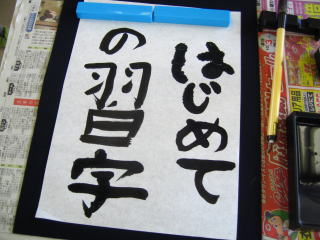 はじめて
の習字